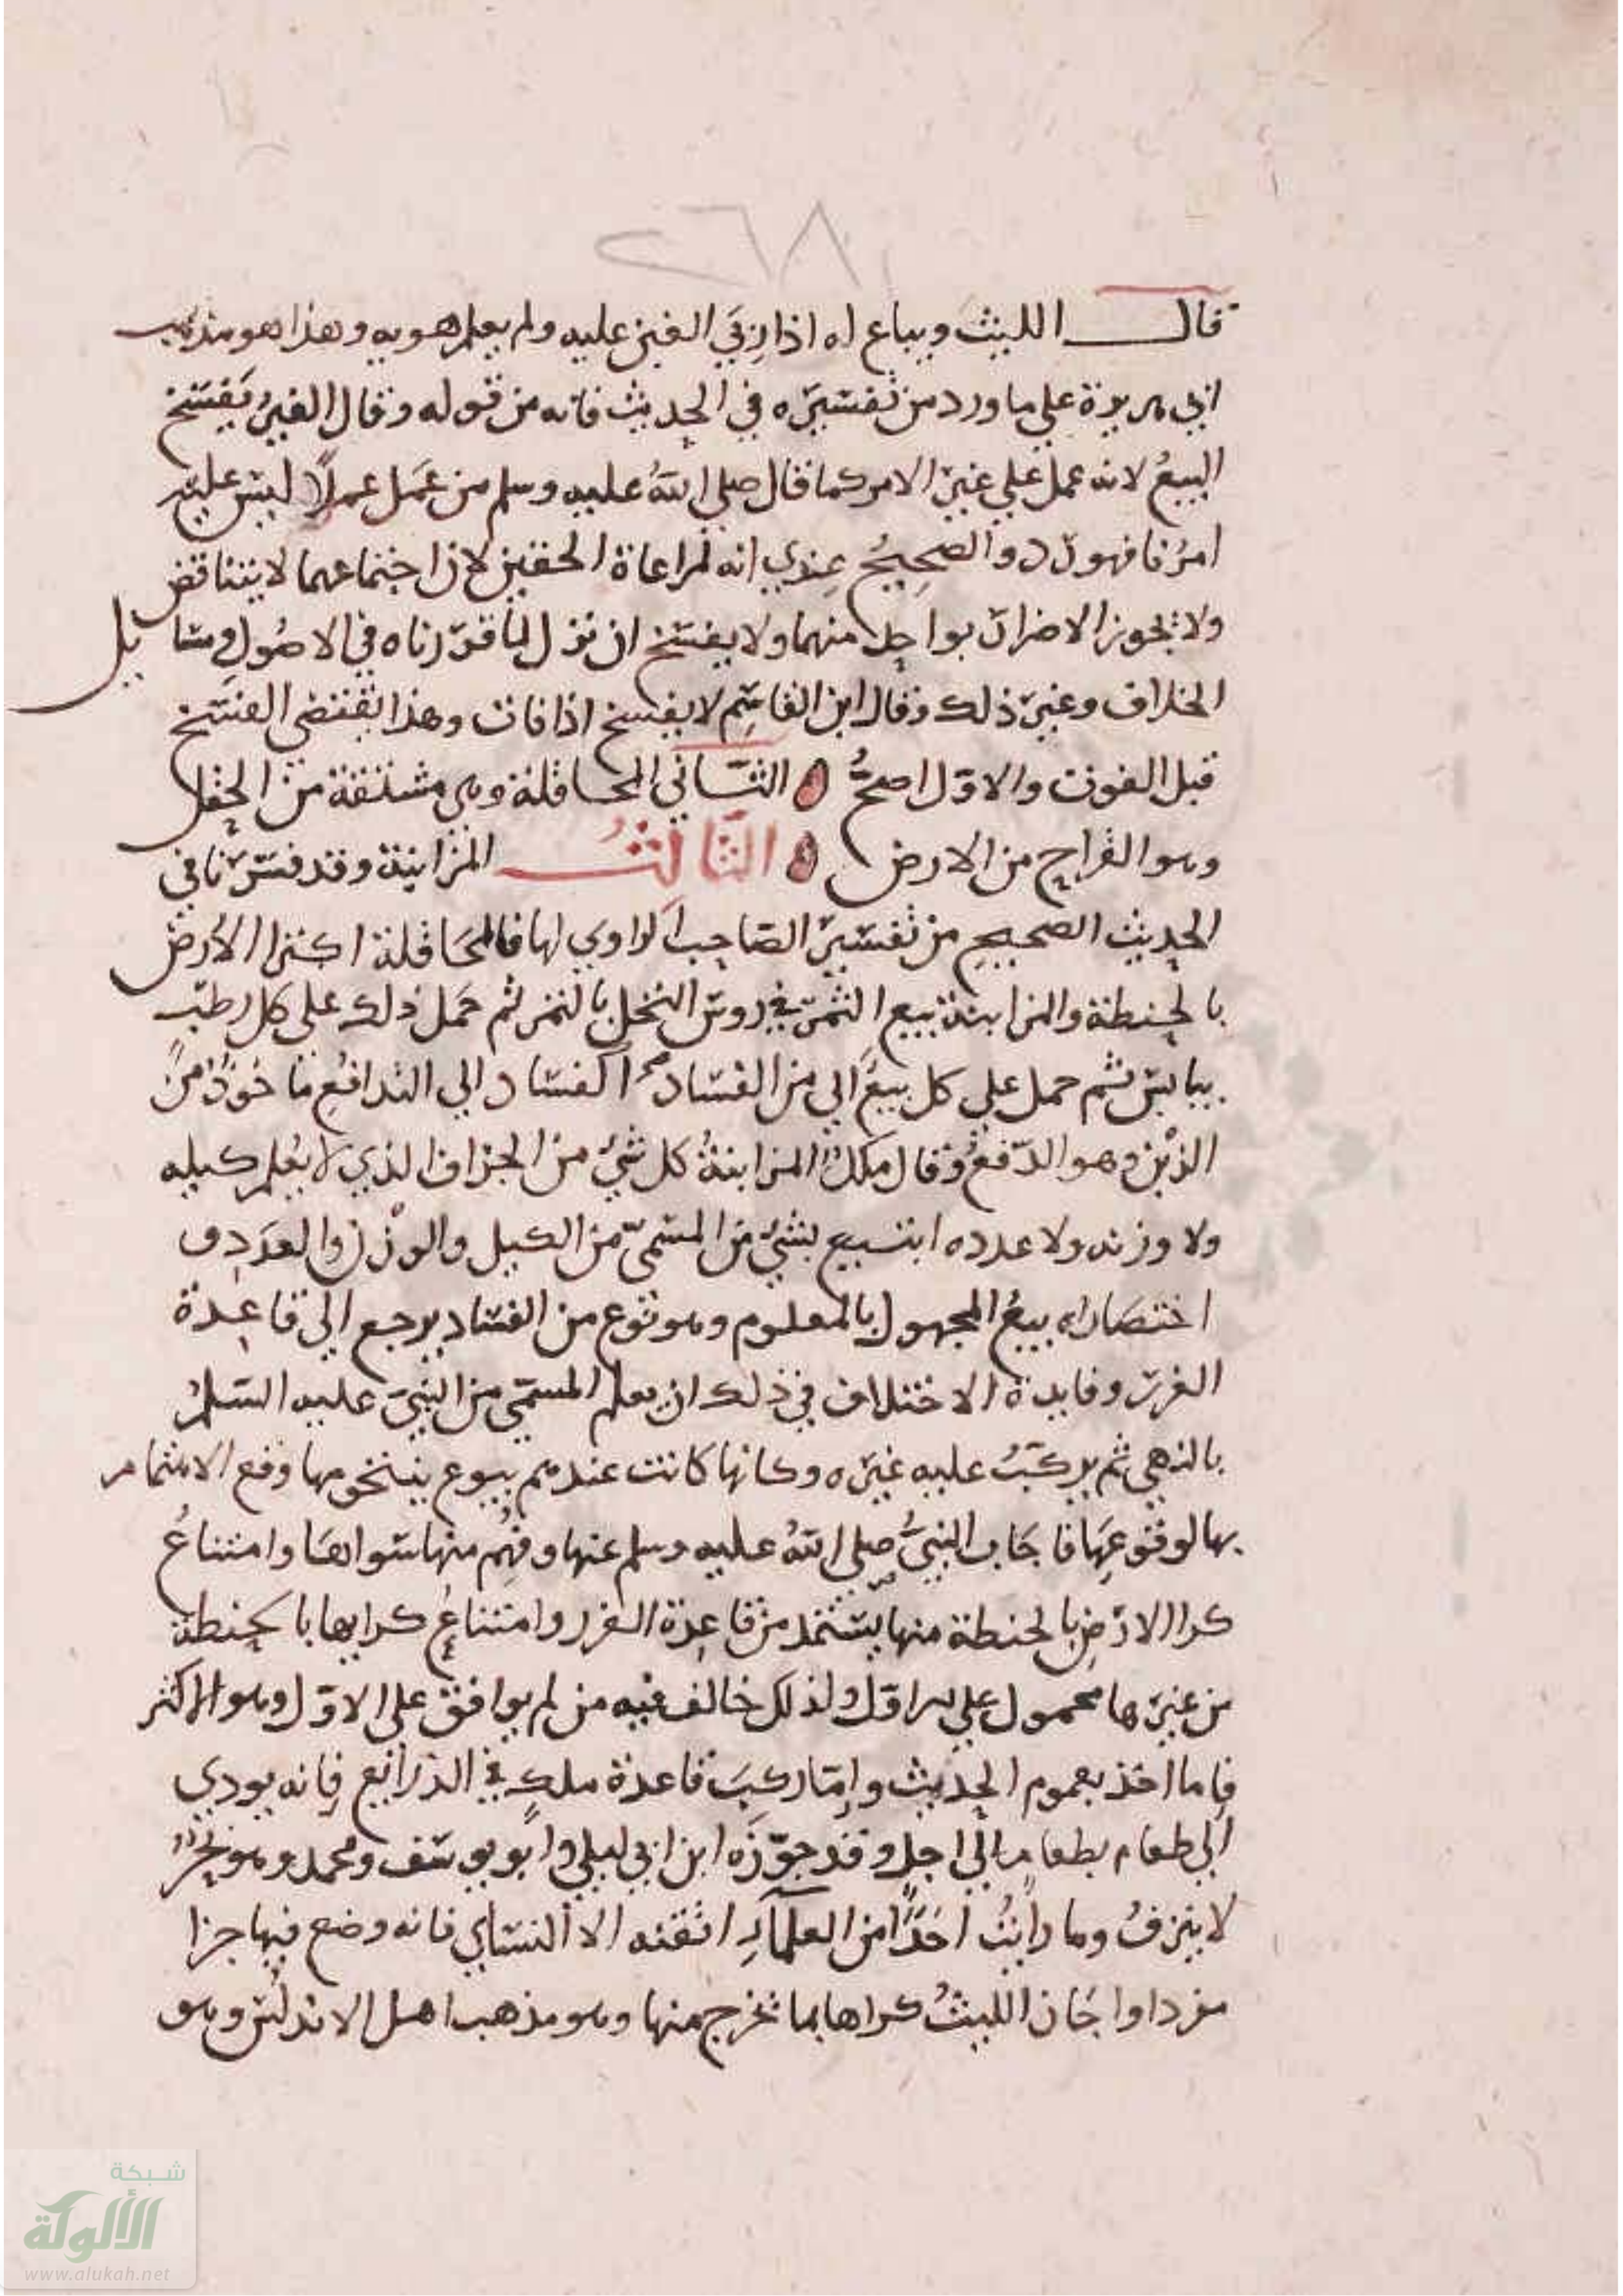 ٢٦٨
قال الليث ويباع له اذا بقي الغبن عليه ولم يعلم هو به وهذا هو مذهب
ابي هريرة علي ما ورد من تفسيره في الحديث فانه من قوله وقال الغير يفسخ
البيع لانه عمل علي غير الامر كما قال صلي الله عليه وسلم من عمل عملا ليس عليه
امرنا فهو رد والصحيح عندي انه لمراعاة الحقين لان اجتماعهما لا يتناقض
ولا يجوز الاضرار بواحد منهما ولا يفسخ ان نزل لما قررناه في الاصول ومسائل
الخلاف وغير ذلك وقال ابن القاسم لا يفسخ اذا فات وهذا يقتضي الفسخ
قبل الفوت والاول اصح الثاني المحاقلة وهي مشتقة من الحقل
وهو القراح من الارض الثالث المزابنة وقد فسرنا في
الحديث الصحيح من تفسير الصاحب الراوي لها فالمحاقلة اكترا الارض
بالحنطة والمزابنة بيع الثمر في روس النخل بالتمر ثم حمل ذلك على كل رطب
بيابس ثم حمل علي كل بيع الي من الفساد الفساد الي التدافع ماخوذ من
الزبن وهو الدفع وقال ملك المزابنة كل شي من الجزاف الذي لا يعلم كيله
ولا وزنه ولا عدده ابتيع بشي من المسمي من الكيل والوزن والعدد في
اختصاره بيع المجهول بالمعلوم وهو نوع من الفساد يرجع الى قاعدة
الغرر وفايدة الاختلاف في ذلك ان يعلم المسمي من النبي عليه السلم
بالنهي ثم يركب عليه غيره وكانها كانت عندهم بيوع ينتحومها وقع الاهتمام
بها لوقوعها فاجاب النبي صلي الله عليه وسلم عنها وفهم منها سواها وامتناع
كرا الارض بالحنطة منها يستمد من قاعدة الغرر وامتناع كرايها بالحنطة
من غيرها محمول علي الاول ولذلك خالف فيه من لم يوافق على الاول وهو الاكثر
فاما اخذ بعموم الحديث واما ركب قاعدة ملك في الذرائع فانه يودي
الي طعام بطعام الي اجل وقد جوزه ابن ابي ليلي وابو يوسف ومحمد وهو بحر
لا ينزف وما رايت احدا من العلماء اتقنه الا النساي فانه وضع فيها جزا
مفردا واجاز الليث كراها بما تخرج منها وهو مذهب اهل الاندلس وهو
شبكة
الألوكة
www.alukah.net